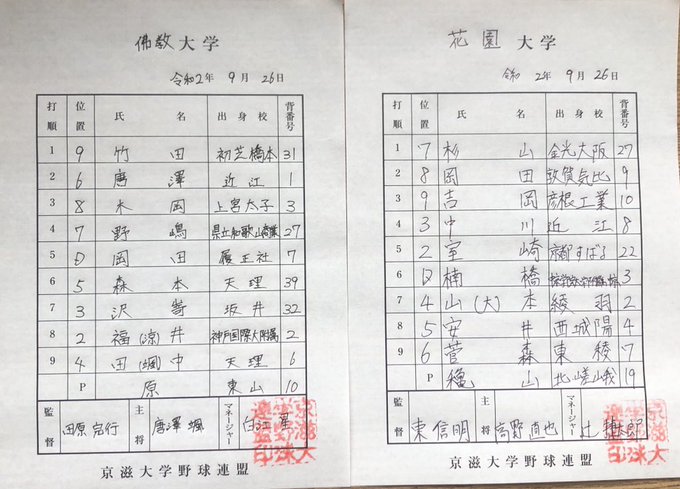 佛教大学
令和2年 9月 26日
打順 位置 氏名 出身校 背番号
1 9 竹田 初芝橋本 31
2 6 唐澤 近江 1
3 8 木岡 上宮太子 3
4 7 野嶋 県立和歌山商業 27
5 D 岡田 履正社 7
6 5 森本 天理 39
7 3 沢嵜 坂井 32
8 2 福(涼)井 神戸国際大附属 2
9 4 田(颯)中 天理 6
P 原 東山 10
監督 田原完行 主将 唐澤颯 マネージャー 白江
京滋大学野球連盟
花園大学
令和 2年 9月 26日
打順 位置 氏名 出身校 背番号
1 7 杉山 金光大阪 27
2 8 岡田 敦賀気比 9
3 9 吉岡 彦根工業 10
4 3 中川 近江 8
5 2 室崎 京都すばる 22
6 D 楠橋 3
7 4 山(大)本 綾羽 2
8 5 安井 西城陽 4
9 6 菅森 東稜 7
P 穐山 北嵯峨 19
監督 東信明 主将 高野直也 マネージャー 辻
京滋大学野球連盟